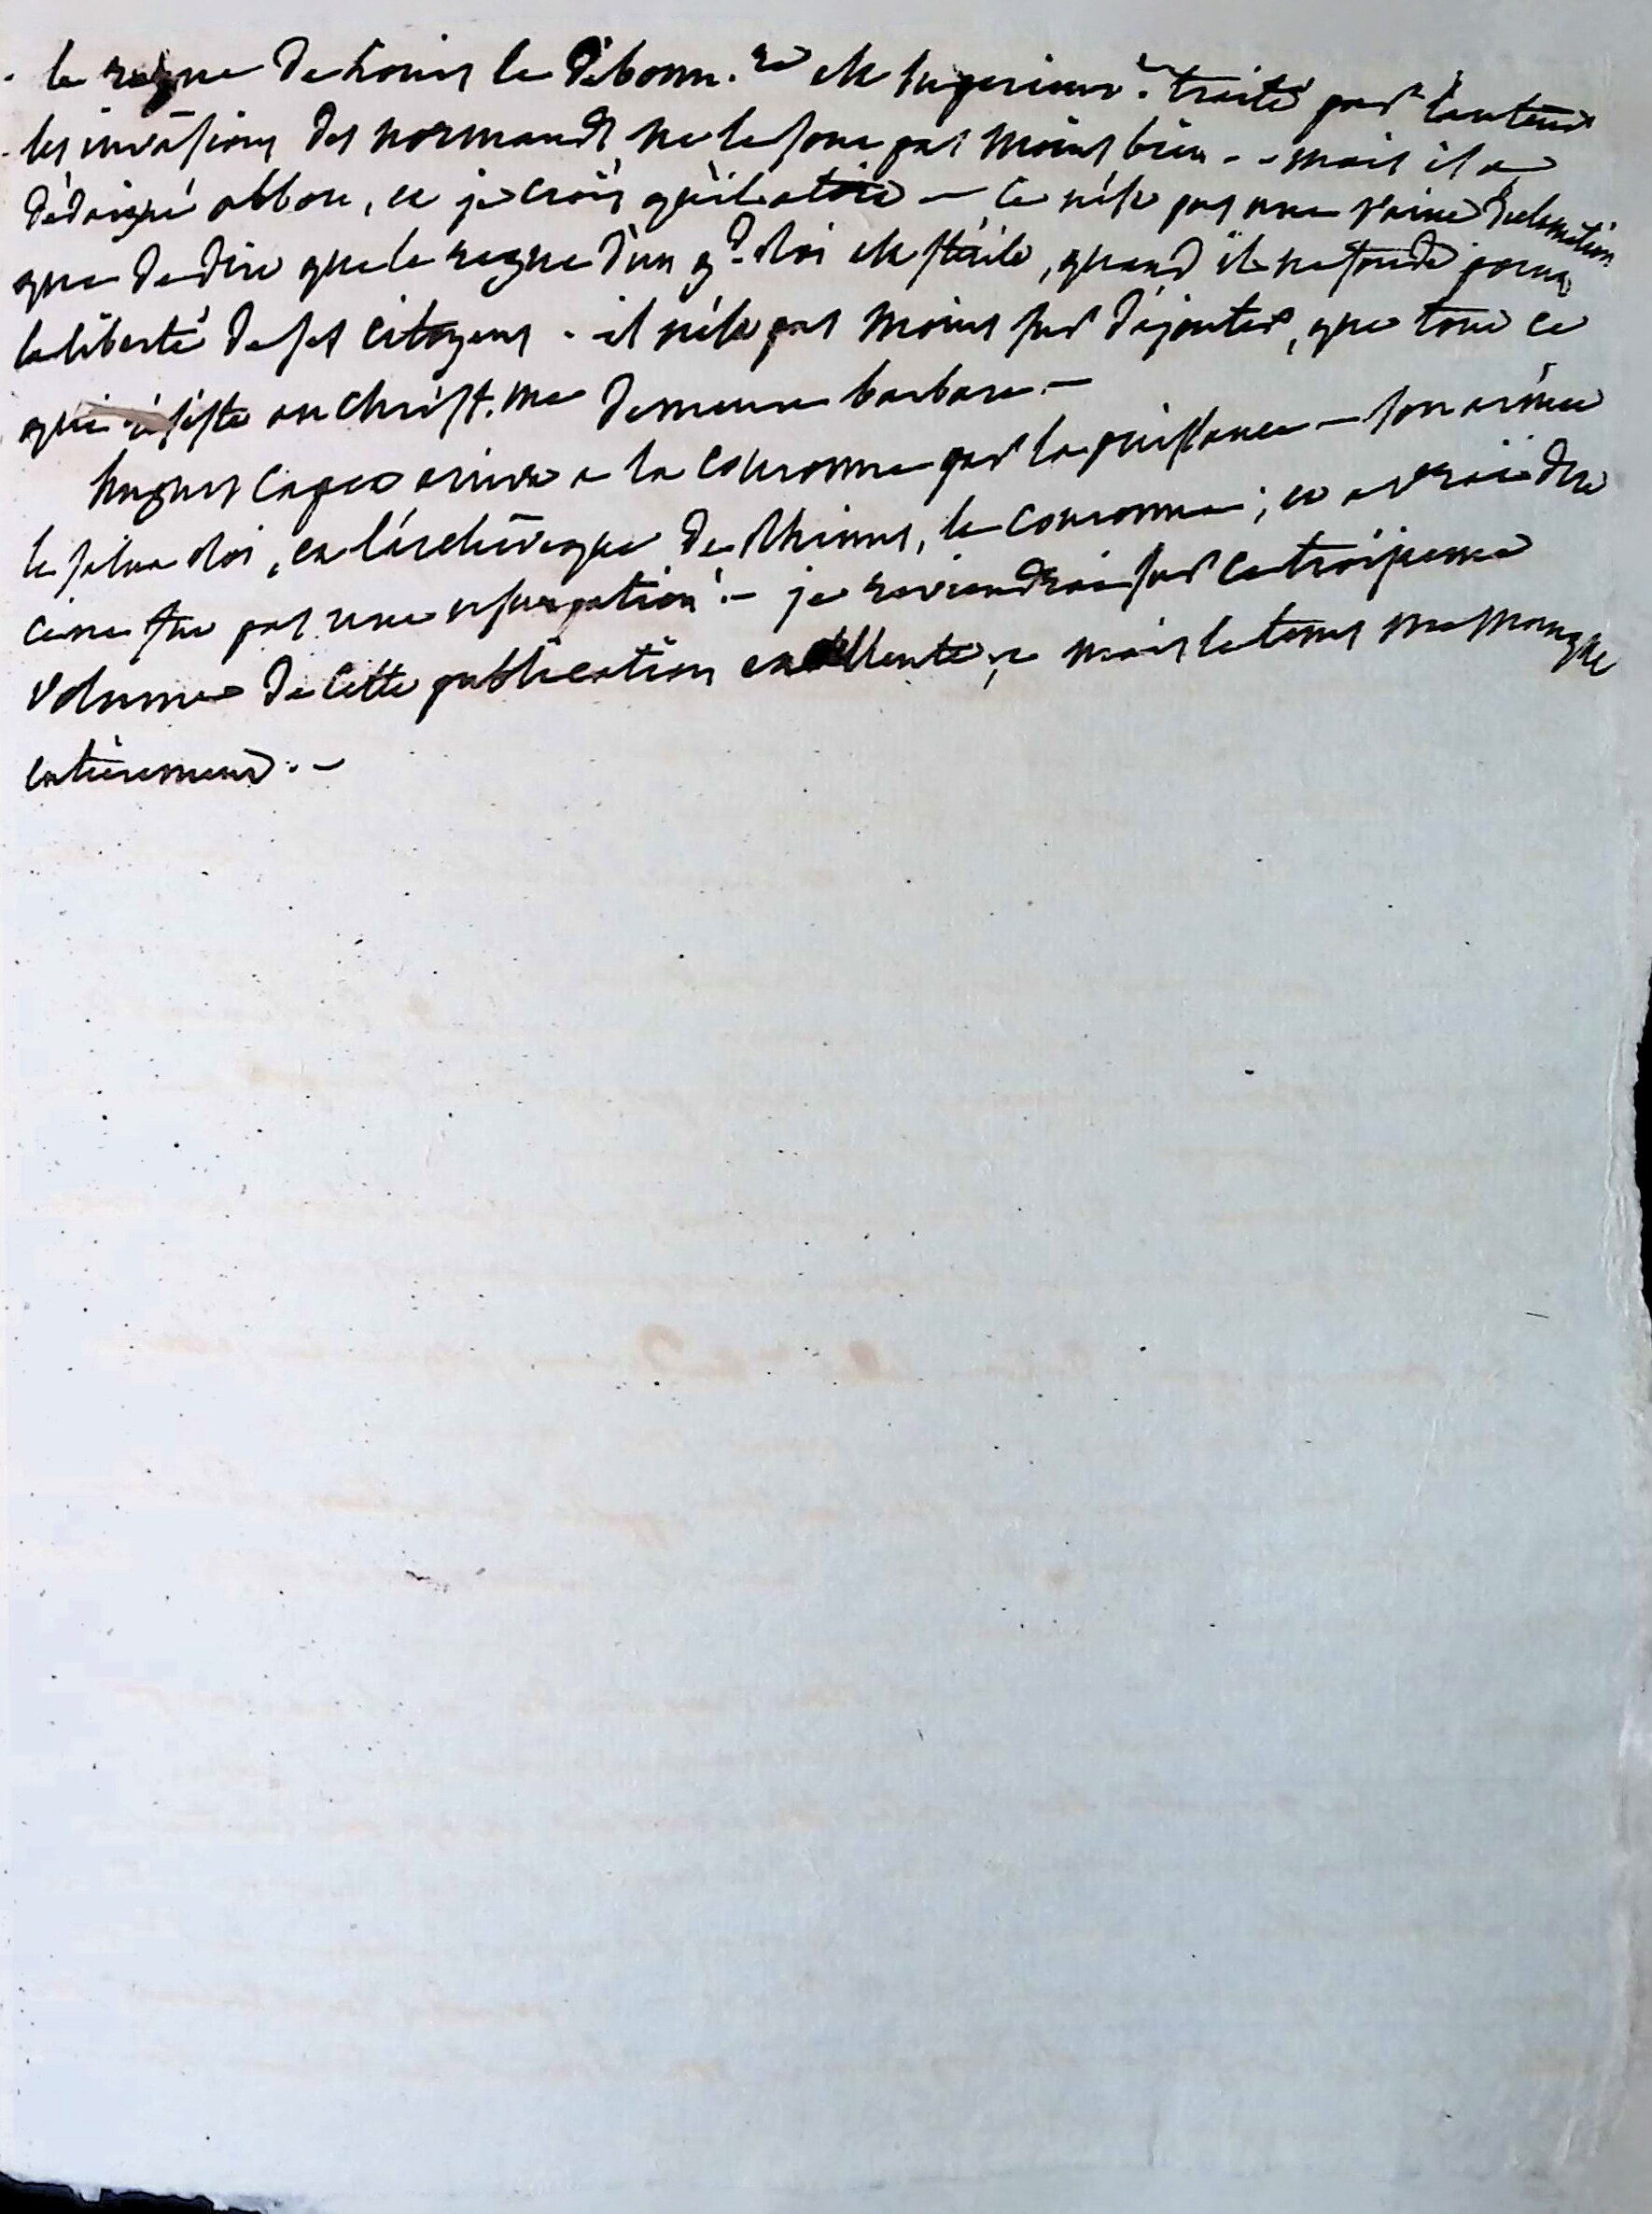 . le regne de Louis le debonn.re est superieur.t traité par l'auteur
. les invasions des normands ne le sont pas moins bien - - mais il a
dédaigné abbon, et je crois qu'il a tort — ce n'est pas une vaine declamation
que de dire que le regne d'un gd Roi est sterile, quand il ne fonde pas
la liberté de ses citoyens . il n'est pas moins sur d'ajouter, que tout ce
qui résiste au Christ.me demeure barbare. —
hugues Capet arrive a la couronne par la puissance — son armée
le salua Roi, et l'archévêque de Rheims, le couronna ; et a vrai dire
ce ne fut pas une usurpation . — je reviendrai sur ce troisieme
volume de cette publication excellente, mais le tems me manque
entierement . —